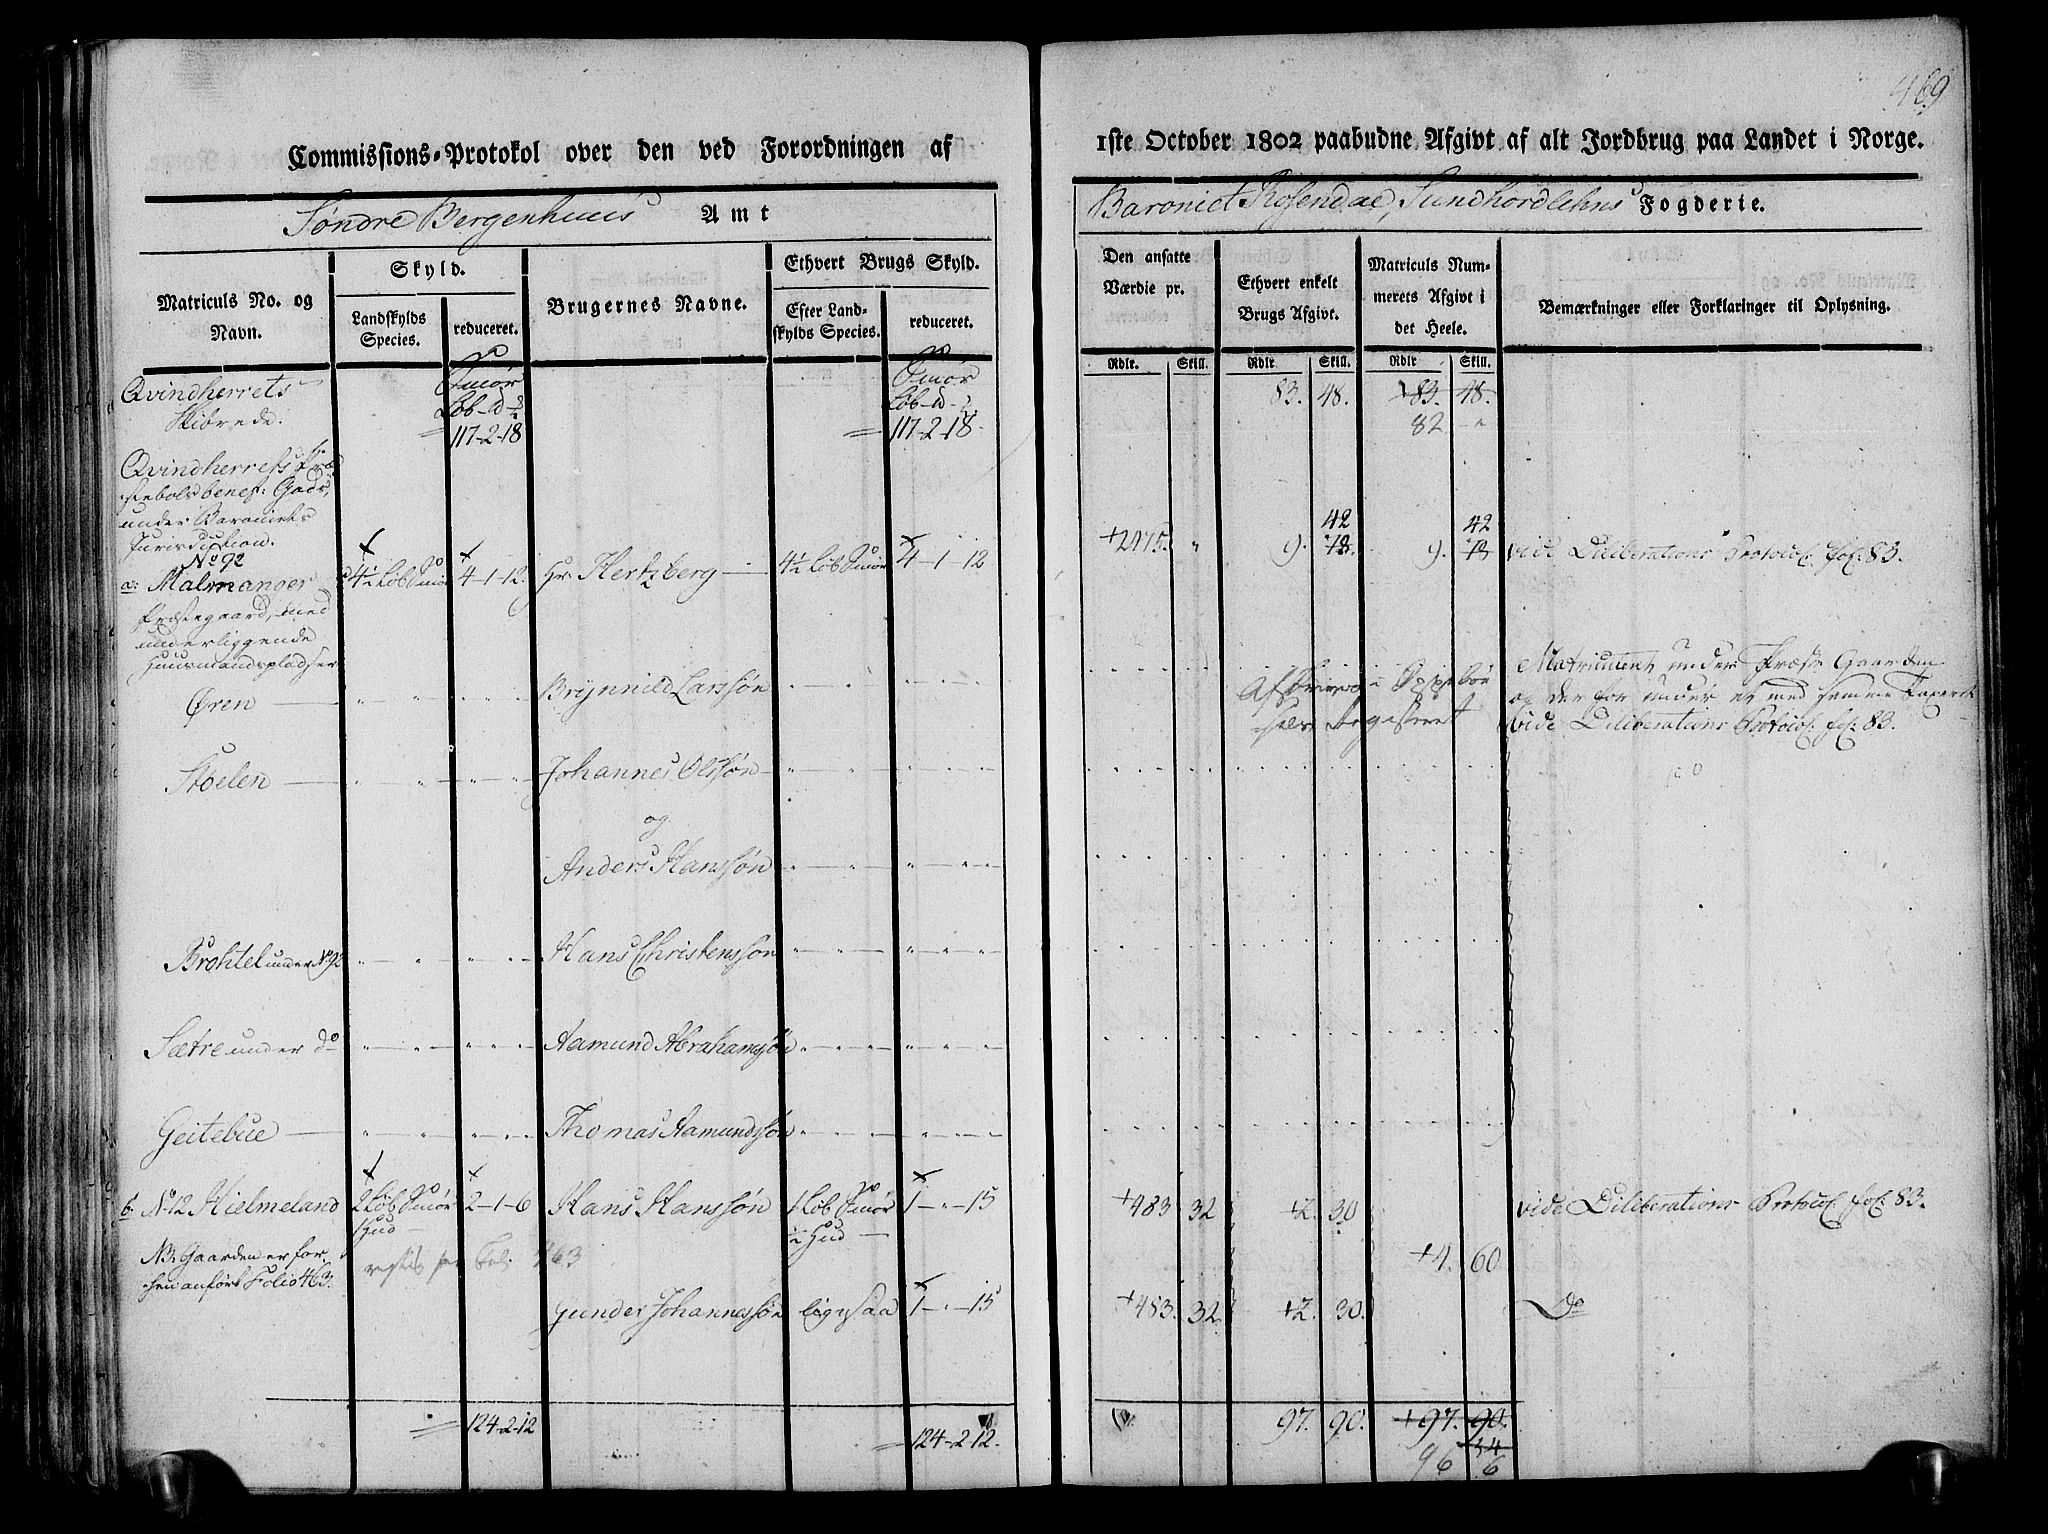 469
Commissions-Protokol over den ved Forordningen af
1ste October 1802 paabudne Afgivt af alt Jordbrug paa Landet i Norge.
Søndre Bergenhuus Amt
Baroniet Rosendal, Sundhordlehns Fogderie.
Matriculs No. og Navn.
Skyld.
Landskylds Species.
reduceret.
Brugernes Navne.
Ethvert Brugs Skyld.
Efter Landskylds Species.
reduceret.
Den ansatte Værdie pr.
Ethvert enkelt Brugs Afgivt.
Matriculs Nummerets Afgivt i det Heele.
Bemærkninger eller Forklaringer til Oplysning.
Rdlr. Skill. Rdlr Skill. Rdlr Skill.
Qvindherrets Smør Smør 83. 48. 83. 48.
Skibrede. Løb 117-2-18 Løb 117-2-18 82
Qvindherrets
stebols benef: Gods,
under Baroniets
Jurisdiction.
No 92 42 42
a: Malmanger 4½ Løb Smør 4-1-12 Hr: Hertzberg 4½ Løb Smør 4-1-12 +2475. " 9. 18. 9. 18 vide Diliberations Protocol. fol: 83.
Præstegaard, med
underliggende
Huusmandspladser
Øren Brynnild Larssøn
Matriculeret under Præste Gaarden
og der for under et med samme
vide Diliberations Protocol. fol: 83.
Stoelen Johannes Olssøn
og
Anders Hanssøn
under No 92 Hans Christenssøn
Sætre under do Aamund Abrahamsøn
Geitebue Thomas Aamundssøn
b: No 12 Hielmeland 2 Løb Smør 2-1-6 Hans Hanssøn 1 Løb Smør 1-"-15 +483 32 +2. 30 vide Diliberations Protocol. fol: 83.
1 Hud ½ Hud
NB: Gaarden er for- 463 +4. 60
hen anført Folio 463.
Gunder Johannessøn ligesaa 1-"-15 +483. 32 +2. 30. Do
124-2-12 124-2-12. 97. 90. +97. 90.
34
96 6